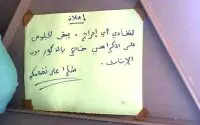 إعلان
لتفادي أي إحراج، يمنع الجلوس
على الكراسي خاص بالذكور دون
الإناث.
شكرا على تفهمكم